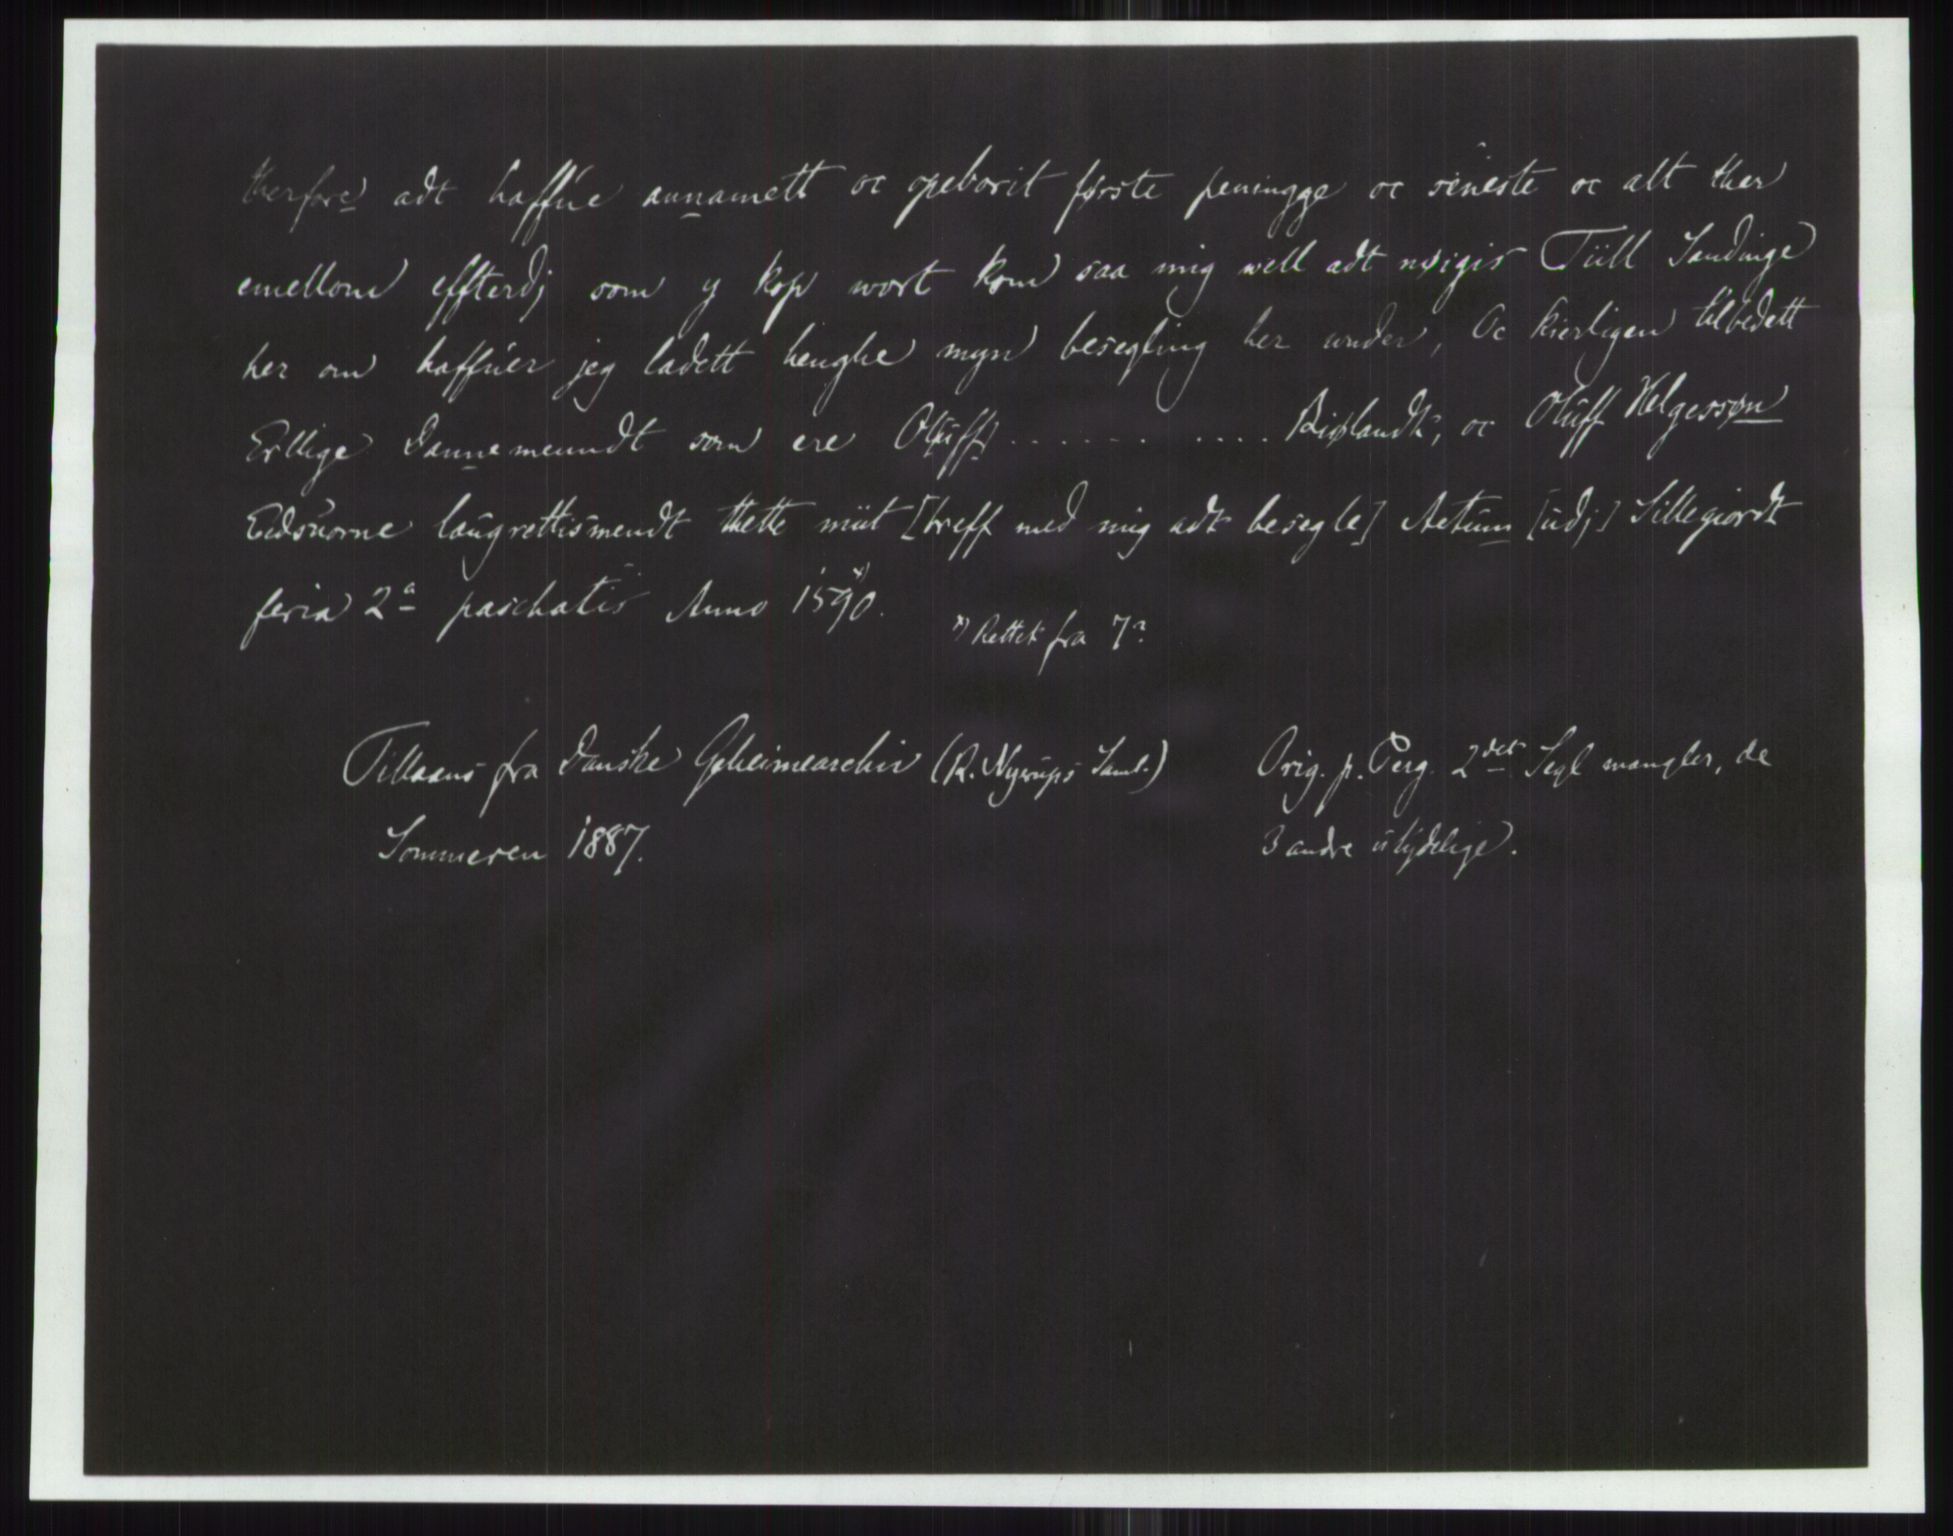 therfore adt haffúe annamett oc opeborit første peningge oc séneste oc alt ther
emellom effterdj som y køp wort kom saa mig well adt nøigis Tiill Sandinge
her om haffúer jeg ladett henghe myn besegling her under, Oc kierligen tilbedett
Erllige Dannemenndt som ere Olúff .......... Biølandt, oc Olúff Helgessøn
Eidsúorne laúgrettismendt thette mit [breff med mig adt besegle] Actum [údj] Sillegiordt
feria 2a paschatis Anno 1590. x)
x) Rettet fra 7?
Tillaans fra Danske Geheimearchiv (R. Nyerúps Saml.)
Sommeren 1887.
Orig. p. Perg. 2det Segl mangler, de
3 andre útydelige.